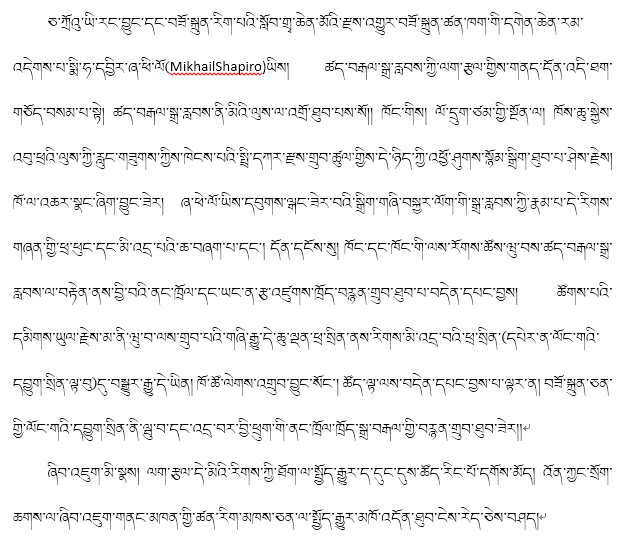 ཅ་ཀྲོའུ་ཡི་རང་བྱུང་དང་བཟོ་སྐྲུན་རིག་པའི་སློབ་གྲྭ་ཆེན་མོའི་རྫས་འགྱུར་བཟོ་སྐྲུན་ཚན་ཁག་གི་དགེན་ཆེན་རམ་
འདེགས་པ་སྨི་ཧ་དབྱིར་ཞ་ཕི་ལོ(MikhailShapiro)ཡིས། ཚད་བརྒལ་སྒྲ་རླབས་ཀྱི་ལག་རྩལ་གྱིས་གནད་དོན་འདི་ཐག་
གཅོད་བསམ་པ་སྟེ། ཚད་བརྒལ་སྒྲ་རླབས་ནི་མིའི་ལུས་ལ་འགྲོ་ཐུབ་པས་སོ།། ཁོང་གིས། ལོ་དྲུག་ཙམ་གྱི་སྔོན་ལ། ཁོས་ཆུ་སྐྱེས་
འབུ་ཕྲའི་ལུས་ཀྱི་རླུང་གཟུགས་ཀྱིས་ཁེངས་པའི་སྤྲི་དཀར་རྫས་གྲུབ་ཚུལ་གྱིས་དེ་ཉིད་ཀྱི་འཕྱོ་ཤུགས་སྙོམ་སྒྲིག་ཐུབ་པ་ཤེས་རྗེས།
ཁོ་ལ་འཆར་སྣང་ཞིག་བྱུང་ཟེར། ཞ་ཕེ་ལོ་ཡིས་དབུགས་ལྒང་ཟེར་བའི་སྒྲིག་གཞི་བསྐྱར་ལོག་གི་སྒྲ་རླབས་ཀྱི་རྣམ་པ་དེ་རིགས་
གཞན་གྱི་ཕྲ་ཕུང་དང་མི་འདྲ་པའི་ཆ་བཞག་པ་དང་། དོན་དངོས་སུ། ཁོང་དང་ཁོང་གི་ལས་རོགས་ཚོས་ཝུ་བས་ཚད་བརྒལ་སྒྲ་
རླབས་ལ་བརྟེན་ནས་བྱི་བའི་ནང་ཁྲོལ་དང་ཡང་ན་རྩ་འཛུགས་ཁྲོད་བརྙན་གྲུབ་ཐུབ་པ་བདེན་དཔང་བྱས། ཚོགས་པའི་
དམིགས་ཡུལ་རྗེས་མ་ནི་ཝུ་བ་ལས་གྲུབ་པའི་གཞི་རྒྱུ་དེ་ཆུ་ལྡན་ཕྲ་སྲིན་ནས་རིགས་མི་འདྲ་བའི་ཕྲ་སྲིན་(དཔེར་ན་ལོང་གའི་
དབྱུག་སྲིན་ལྟ་བུ)དུ་བསྒྱུར་རྒྱུ་དེ་ཡིན། ཁོ་ཚོ་ལེགས་འགྲུབ་བྱུང་སོང་། ཚོད་ལྟ་ལས་བདེན་དཔང་བྱས་པ་ལྟར་ན། བཟོ་སྐྲུན་ཅན་
གྱི་ལོང་གའི་དབྱུག་སྲིན་ནི་ལྦུ་བ་དང་འདྲ་བར་བྱི་ཕྲུག་གི་ནང་ཁྲོལ་ཁྲོད་སྒྲ་བརྒལ་གྱི་བརྙན་གྲུབ་ཐུབ་ཟེར།།
ཞིབ་འཇུག་མི་སྣས། ལག་རྩལ་དེ་མིའི་རིགས་ཀྱི་ཐོག་ལ་སྤྱོད་རྒྱུར་ད་དུང་དུས་ཚོད་རིང་པོ་དགོས་མོད། འོན་ཀྱང་སྲོག་
ཆགས་ལ་ཞིབ་འཇུག་གནང་མཁན་གྱི་ཚན་རིག་མཁས་ཅན་ལ་སྤྱོད་རྒྱུར་མཁོ་འདོན་ཐུབ་ངེས་རེད་ཅེས་བཤད།